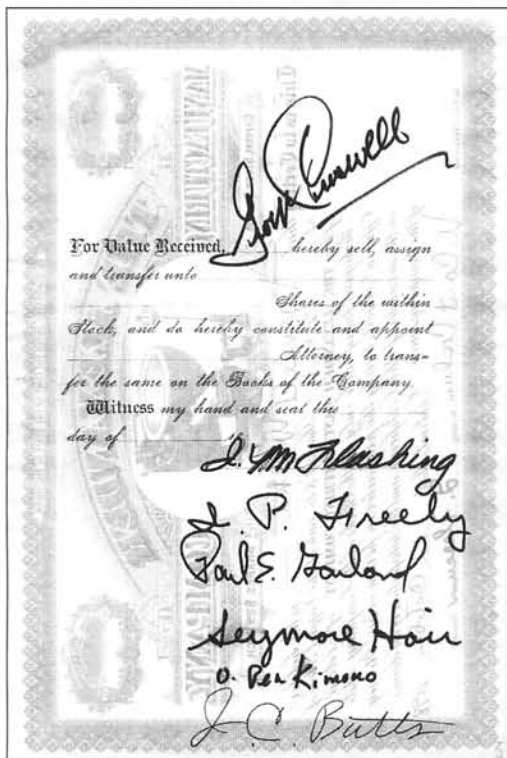 For Value Received, hereby sell, assign
and transfer unto
Shares of the within
Stock, and do hereby constitute and appoint
Attorney, to trans-
fer the same on the Books of the Company.
Witness my hand and seal this
day of
I. M. Flushing
I. P. Freely
Paul E. Garland
Seymore Hair
O. Pen Kimono
J. C. Butts